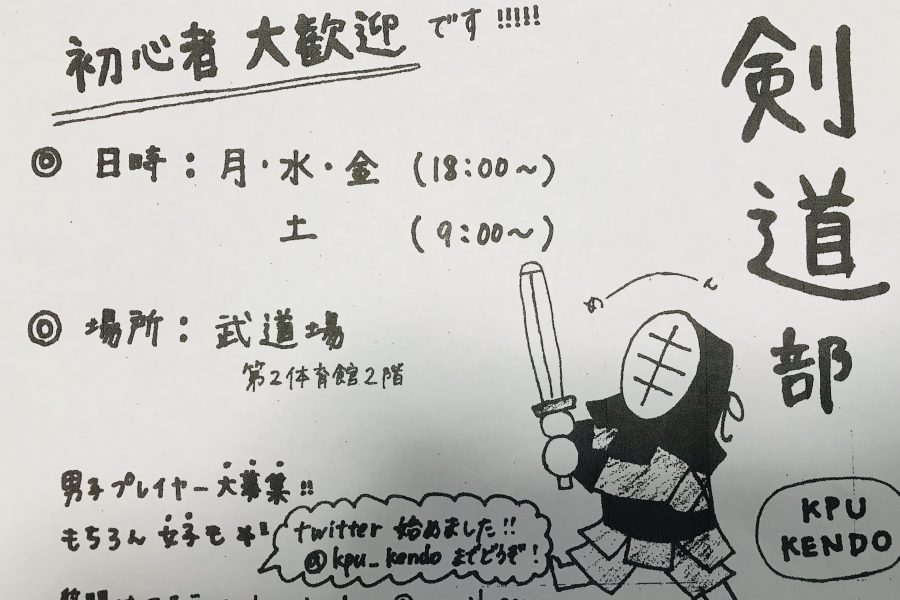 剣道部
初心者 大歓迎 です!!!!!
◎ 日時：月・水・金 (18:00〜)
土 (9:00〜)
◎ 場所：武道場
第2体育館2階
め〜ん
男子プレイヤー大募集!!
もちろん 女子も
twitter 始めました!!
@kpu_kendo までどうぞ!
KPU
KENDO